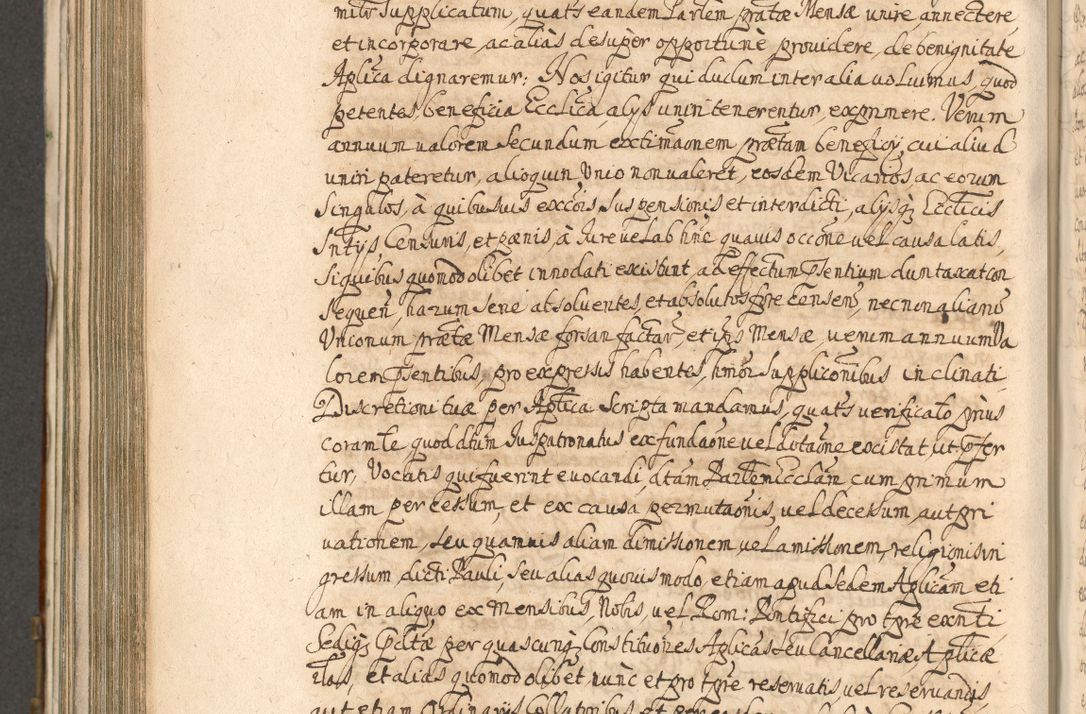 mitr supplicatum, quats eandem Parlem prætæ Mensæ unire, annectere
et incorporare, ac aliàs desupèr opportunè providere, de benignitate
Aplica dignaremur: Nos igitur qui dudum inter alia voluimus, quod
petentes, beneficia Ecclica, alys uniri tenerentur, exprimere. Verum
annuum valorem secundum exctimaonem, prætam beneficij, cui aliud
uniri pateretur, alioquin Unio non valeret, eosdem Vicarios, ac eorum
Singulos, à quibusuis exccois suspensionis et interdicti, alysq; Ecclicis
Sntijs Censuris, et pænis, à Iure vel ab hne quavis occone vel causa latis,
si quibus quomodolibet innodati existunt, ad effectum Psentium duntaxat con
sequen, harum serie absolventes, et absolutos fore censen, necnon aliarum
Unionum prætæ Mensæ forsan factar, et ipsis Mensæ, verum annuum Va
lorem Psentibus, pro expressis habentes, hmoi supplicōnibus inclinati
Discretioni tuæ per Aplica Scripta mandamus, quats verificato prius
coram te, quod dtum Juspatronatus ex fundaone vel dotaone existat ut pfer
tur, Vocatis qui fuerint evocandi, dtam Parlem Ecclam cum primum
illam per cessum, et ex causa permutaonis, vel decessum, aut pri
vationem, seu quamvis aliam dimissionem, vel amissionem, religionis in
gressum, dicti Pauli, seu alias quovismodo, etiam apud Sedem Aplicam eti
am in aliquo ex Mensibus, Nobis, vel Rom: Pontifici pro tpre exnti
Sediq; Pdtæ per quascunq; Constituones Aplicas seu Cancellariæ Aplicæ
rlas, et alias quomodolibet nunc et pro tpre reservatis vel reservandis
aut etiam Ordinarijs Collatoribus et